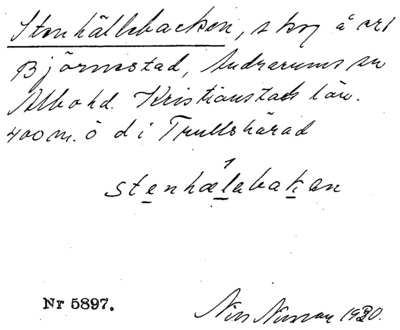 Stenhällebacken, skog å art
Björnastad, Andrarums sn
Albo hd. Kristianstads län.
400 m. ö d i Trullshärad
stenhælabakan
Nr 5897.
Nils Nilsson 1920.